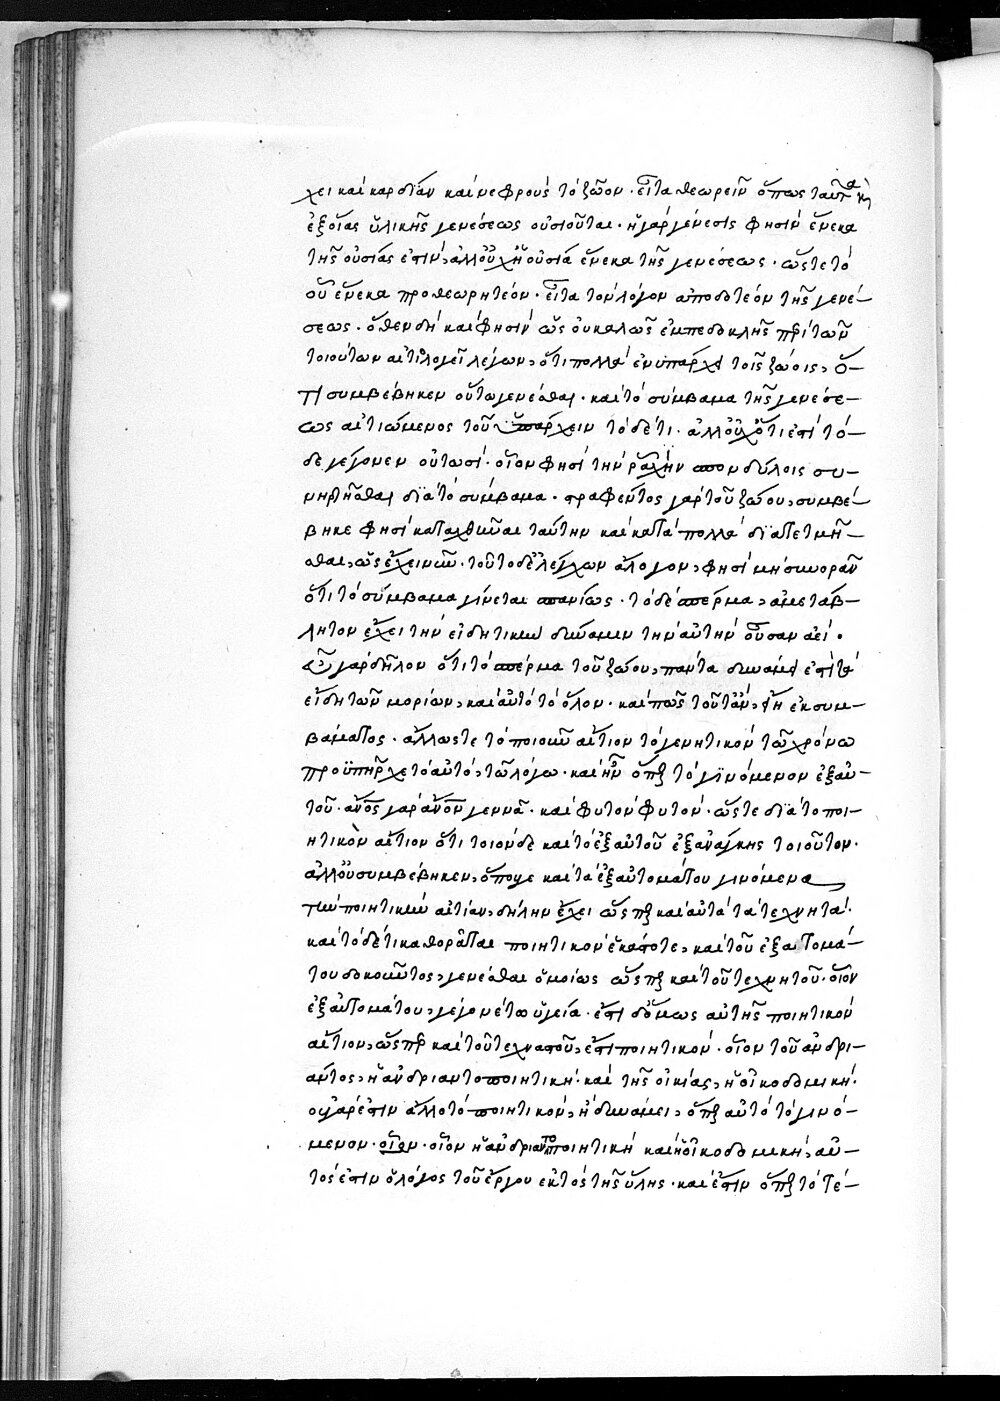 χει καὶ καρδίαν καὶ νεφροὺς τὸ ζῶον· εἶτα θεωρεῖν ὅπως ταῦτα καὶ
ἐξ οἵας ὑλικῆς γενέσεως οὐσιοῦται· ἡ γὰρ γένεσις φησὶν ἕνεκα
τῆς οὐσίας ἐστίν, ἀλλ' οὐχ ἡ οὐσία ἕνεκα τῆς γενέσεως· ὥστε τὸ
οὗ ἕνεκα προθεωρητέον· εἶτα τὸν λόγον ἀποδοτέον τῆς γενέ-
σεως· ὅθεν δὴ καὶ φησὶν ὡς οὐ καλῶς ἐμπεδοκλῆς περὶ τῶν
τοιούτων αἰτιολογεῖ λέγων, ὅτι πολλὰ ἐνυπάρχει τοῖς ζώοις, ὅ-
τι συμβέβηκεν οὕτω γενέσθαι· καὶ τὸ σύμβαμα τῆς γενέσε-
ως αἰτιώμενος τοῦ ὑπάρχειν τόδέ τι· ἀλλ' οὐχ ὅτι ἐστὶ τό-
δε γέγονεν οὑτωσί· οἷον φησὶ τὴν ῥάχιν σπονδύλοις συ-
νηρτῆσθαι διὰ τὸ σύμβαμα· στραφέντος γὰρ τοῦ ζώου, συμβέ-
βηκε φησὶ καταχθῆναι ταύτην καὶ κατὰ πολλὰ διατετμῆ-
σθαι, ὡς ἔχει νῦν· τοῦτο δὲ ἐλέγχων ἄλογον, φησὶ μὴ συνορᾶν
ὅτι τὸ σύμβαμα γίνεται σπανίως· τὸ δὲ σπέρμα, ἀμετάβ-
λητον ἔχει τὴν εἰδητικὴν δύναμιν τὴν αὐτὴν οὖσαν ἀεί·
γὰρ δῆλον ὅτι τὸ σπέρμα τοῦ ζώου, πάντα δυνάμει ἐστὶ τὰ
εἴδη τῶν μορίων, καὶ αὐτὸ τὸ ὅλον· καὶ πῶς τοῦτ' ἂν, εἴη ἐκ συμ-
βάματος· ἄλλως τε τὸ ποιοῦν αἴτιον τὸ γεννητικὸν τῷ χρόνω
προϋπῆρχε τὸ αὐτὸ, τῷ λόγω· καὶ ἦν ὅπερ τὸ γινόμενον ἐξ αὐ-
τοῦ· ἄνος γὰρ ἄνον γεννᾷ· καὶ φυτὸν φυτόν· ὥστε διὰ τὸ ποι-
ητικὸν αἴτιον ὅτι τοιόνδε καὶ τὸ ἐξ αὐτοῦ ἐξ ἀνάγκης τοιοῦτον·
ἀλλ' οὐ συμβέβηκεν, ὅπουγε καὶ τὰ ἐξ αὐτομάτου γινόμενα
τὴν ποιητικὴν αἰτίαν, δήλην ἔχει ὥσπερ καὶ αὐτὰ τὰ τεχνητά·
καὶ τόδέ τι καθορᾶται ποιητικὸν ἑκάστοτε, καὶ τοῦ ἐξ αὐτομά-
του δοκοῦντος, γενέσθαι ὁμοίως ὥσπερ καὶ τοῦ τεχνητοῦ· οἷον
ἐξ αὐτομάτου, γέγονέ τω ὑγεία· ἔστι δ' ὅμως αὐτῆς ποιητικὸν
αἴτιον, ὥσπερ καὶ τοῦ τεχναστοῦ, ἐστὶ ποιητικόν· οἷον τοῦ ἀνδρι-
άντος, ἡ ἀνδριαντοποιητική· καὶ τῆς οἰκίας, ἡ οἰκοδομική·
οὐ γάρ ἐστιν ἄλλο τὸ ποιητικὸν, ἢ δυνάμει, ὅπερ αὐτὸ τὸ γινό-
μενον· οἷον· οἷον ἡ ἀνδριαντοποιητικὴ καὶ ἡ οἰκοδομική, αὐ-
τός ἐστιν ὁ λόγος τοῦ ἔργου ἐκτὸς τῆς ὕλης· καὶ ἔστιν ὅπερ τὸ τέ-